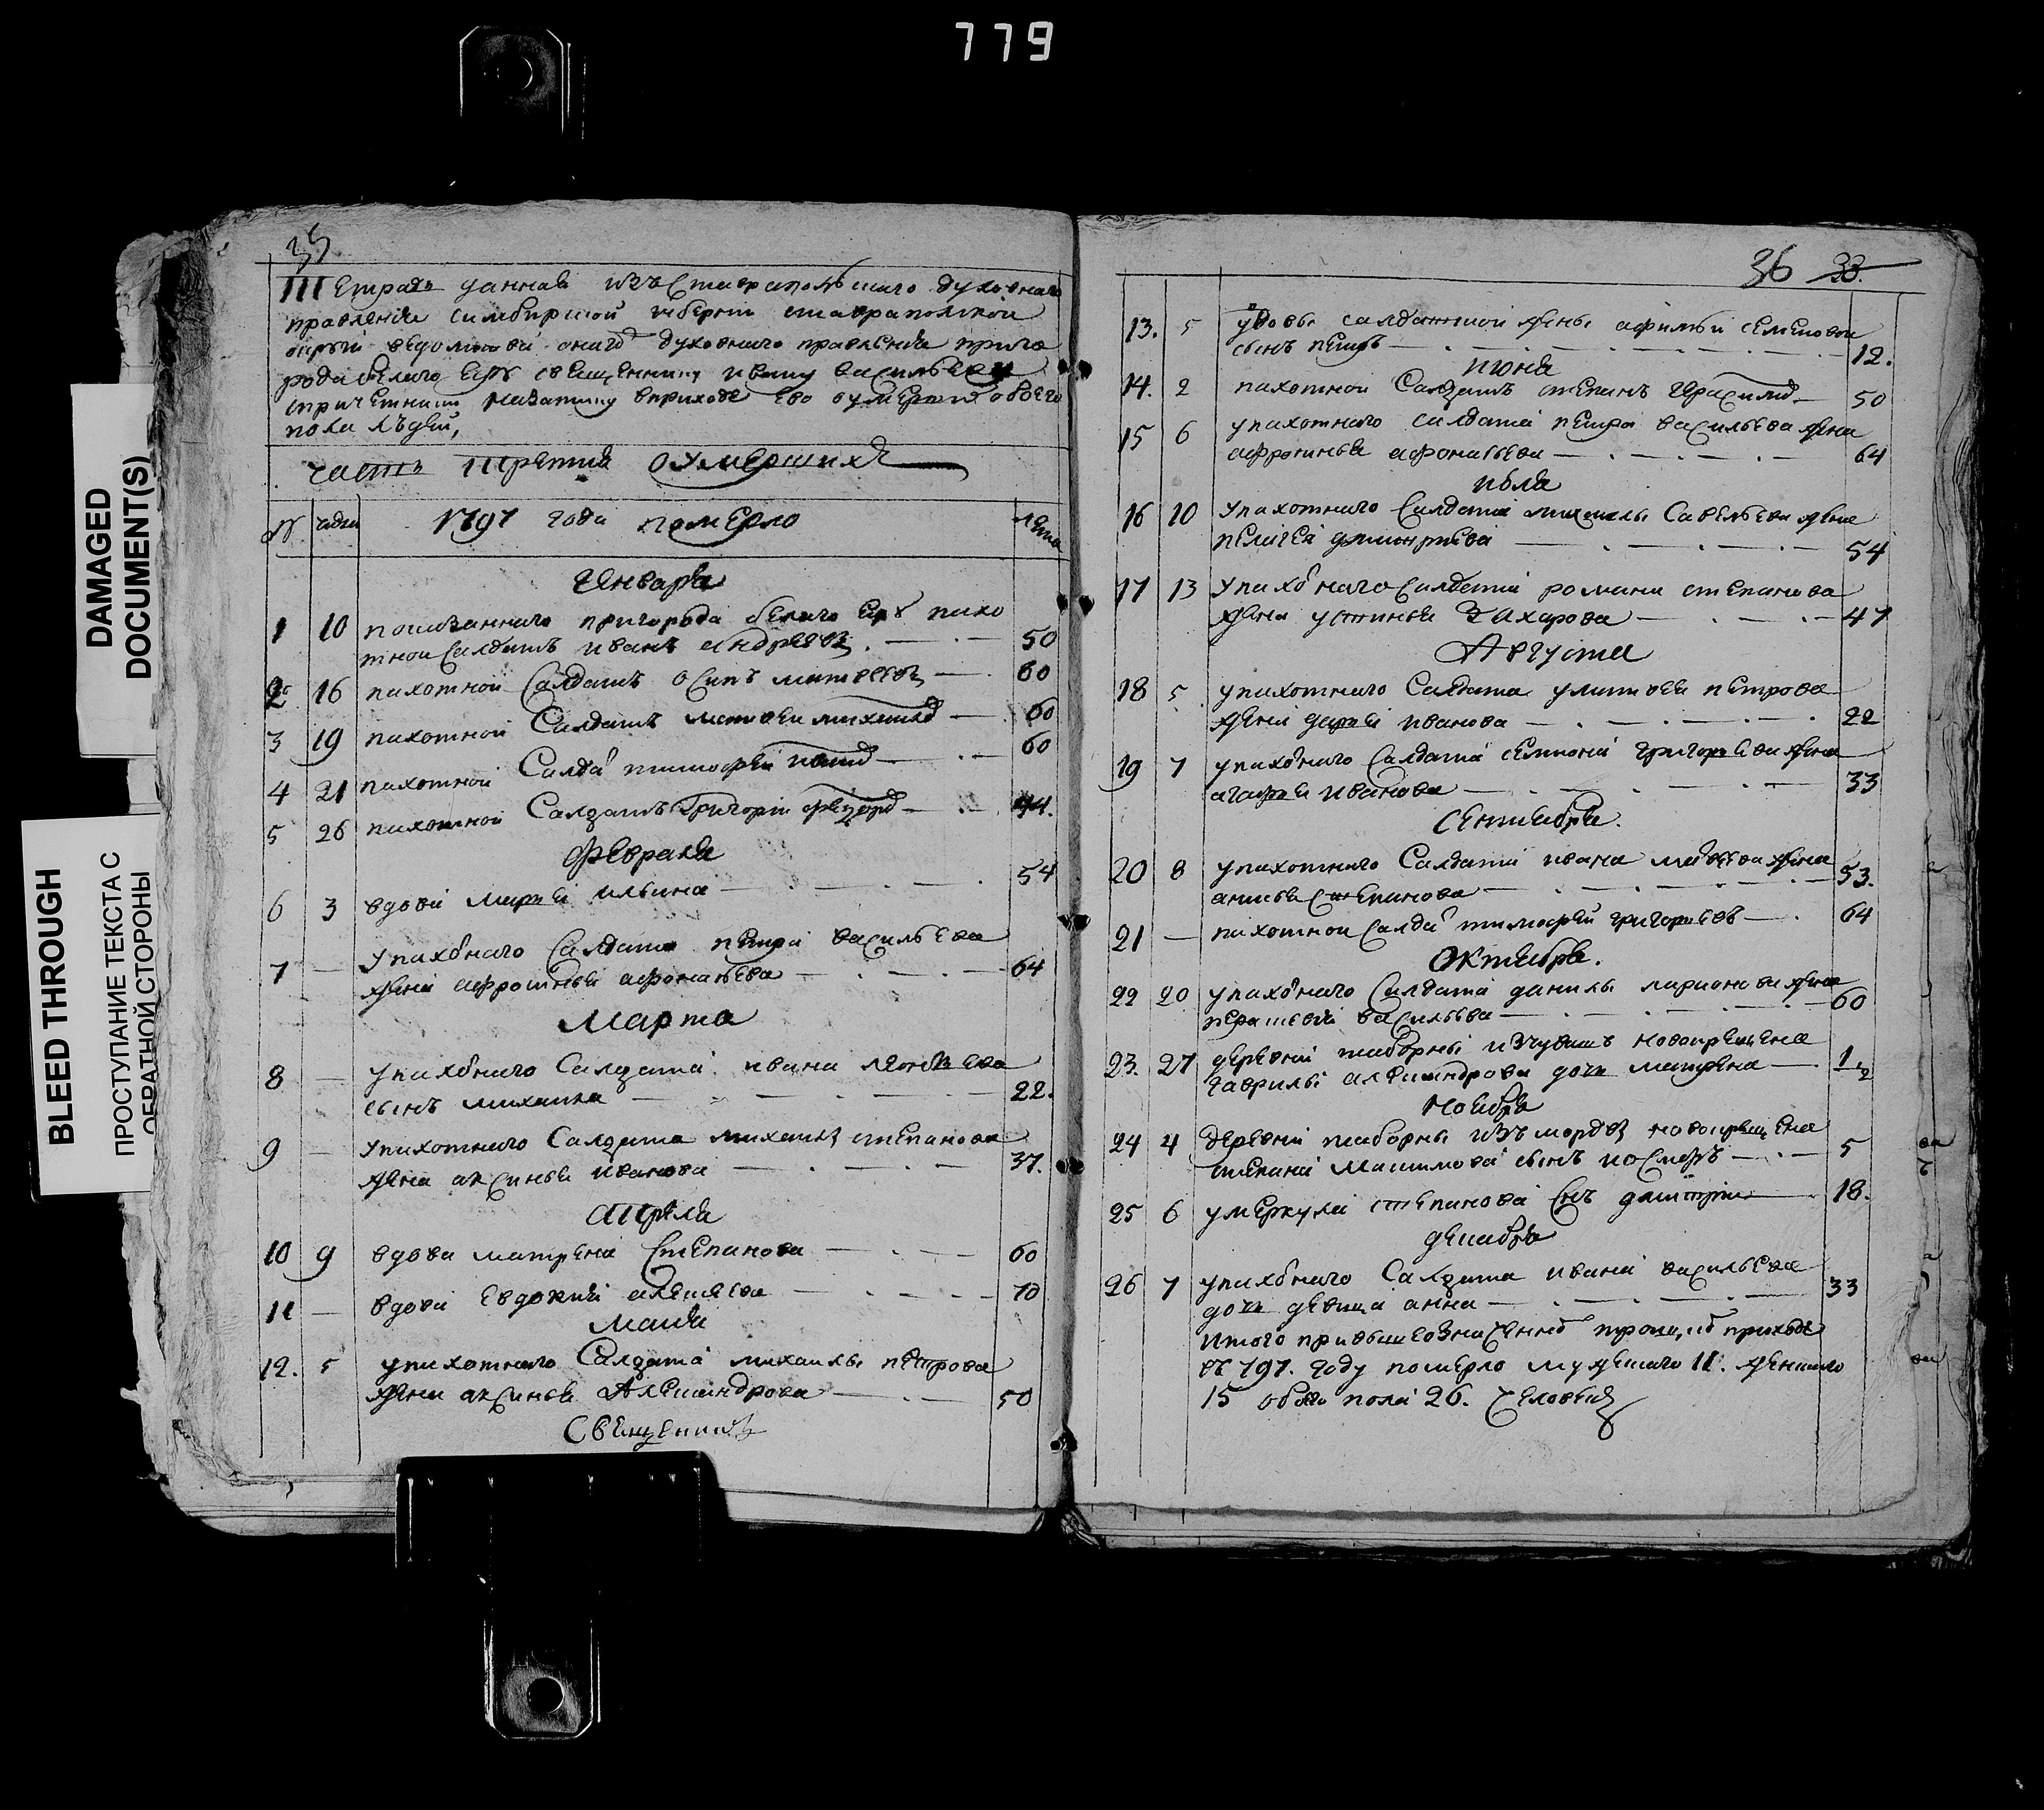 779
DAMAGED
DOCUMENT(S)
BLEED THROUGH
ПРОСТУПАНИЕ ТЕКСТА С
ОБРАТНОЙ СТОРОНЫ
35
Тетрадь данная изъ Ставрапольскаго духовнаго
правления симбирской губернии ставрапольской
округи ведомства онаго духовнаго правления приго
рода белаго Еру свещеннику ивану васильеву
спричетники Назапису вприходе его оумерших обоего
пола людей,
часть третия оумерших
№ числа 1797 года померло лета
Генваря
1 10 показаннаго пригорода белаго Еру пахо
тной Салдатъ иванъ андреевъ 50
2 16 пахотной Салдатъ осипъ матвеевъ 60
3 19 пахотной Салдатъ матвеи михаилов 60
4 21 пахотной Салда тимофеи иванов 60
5 26 пахотной Салдатъ Григории федоров 44.
Февраля
6 3 вдова марья ильина 54
7 — упахотнаго Салдата петра васильева
жена афросинья афонасьева 64
Марта
8 — упахотнаго Салдата ивана леонтьева
сынъ михаила 22.
9 — упахотнаго Салдата михаила степанова
жена аксинья иванова 37.
Апреля
10 9 вдова матрена Степанова 60
11 — вдова Евдокия алексеева 70
Маия
12. 5 упахотнаго Салдата михаилы петрова
жена аксинья Александрова 50
Свещенникъ
36 33.
13. 5 увдовы салдатской жены афимьи семеновой
сынъ петръ 12.
июня
14. 2 пахотной Салдатъ степанъ герасимов 50
15 6 упахотнаго салдата петра васильева жена
афросинья афонасьева 64
июля
16 10 Упахотнаго Салдата михаилы Савельева жена
пелагея дмитриева 54
17 13 Упахотнаго Салдата романа степанова
жена устинья Захарова 47
Августа
18 5 упахотнаго Салдата уматвея петрова
жена дарья иванова 22
19 7 упахотнаго Салдата семиона григорьева жена
агафья иванова 33
Сентября.
20 8 упахотнаго Салдата ивана матвеева жена
анисья степанова 53.
21 — пахотной салда тимофей григорьевъ 64
Октября.
22 20 упахотнаго Салдата данилы ларионова жена
парасковья васильева 60
23. 27 деревни таборны изчувашъ новокрещена
гаврилы александрова дочь матрена 1/2
Ноября
24 4 деревни таборны изъ мордвы новокрещена
степана максимова сынъ косма 5
25 6 умеркула степанова снъ дмитрии 18.
декабря
26 7 упахотнаго Салдата ивана васильева
дочь девица анна 33
итого привышеозначенной троицкой приходе
въ 797. году померло мужескаго 11. женскаго
15 обоего пола 26. человекъ